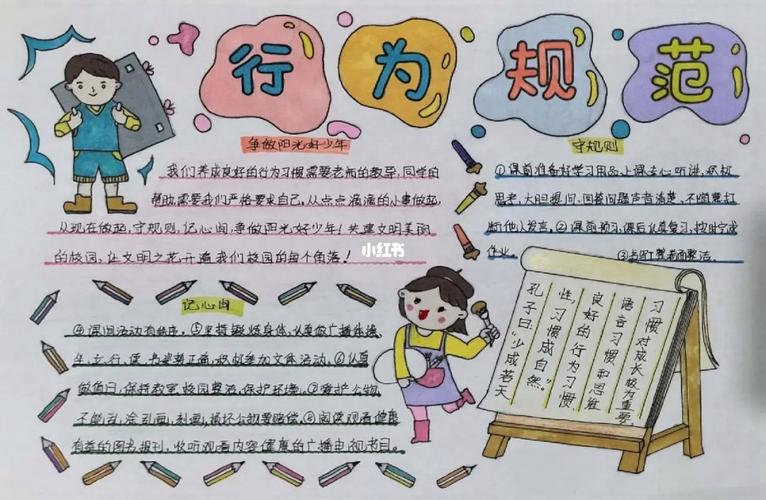 行为规范
争做阳光好少年
我们养成良好的行为习惯需要老师的教导,同学的
帮助,需要我们严格要求自己,从点点滴滴的小事做起,
从现在做起,守规则,记心间,争做阳光好少年!共建文明美丽
的校园,让文明之花开遍我们校园的每个角落!
守规则
①课前准备好学习用品,上课专心听讲,积极
思考,大胆提问,回答问题声音清楚,不随意打
断他人发言。②课前预习,课后认真复习,按时完成
作业,③书写整洁。
小红书
记心间
④课间活动有秩序。⑤坚持锻炼身体,认真做广播体操
坐、立、行、读、书姿势正确,积极参加文体活动。⑥认真
做值日,保持教室、校园整洁,保护环境。⑦爱护公物,
不乱涂画、刻画,损坏公物要赔偿。⑧阅读、观看健康
有益的图书、报刊,收听观看内容健康的广播电视节目。
孔子曰:“少成若天
性,习惯成自然。
良好的行为习惯
语言习惯和思维
习惯对成长极为重要。